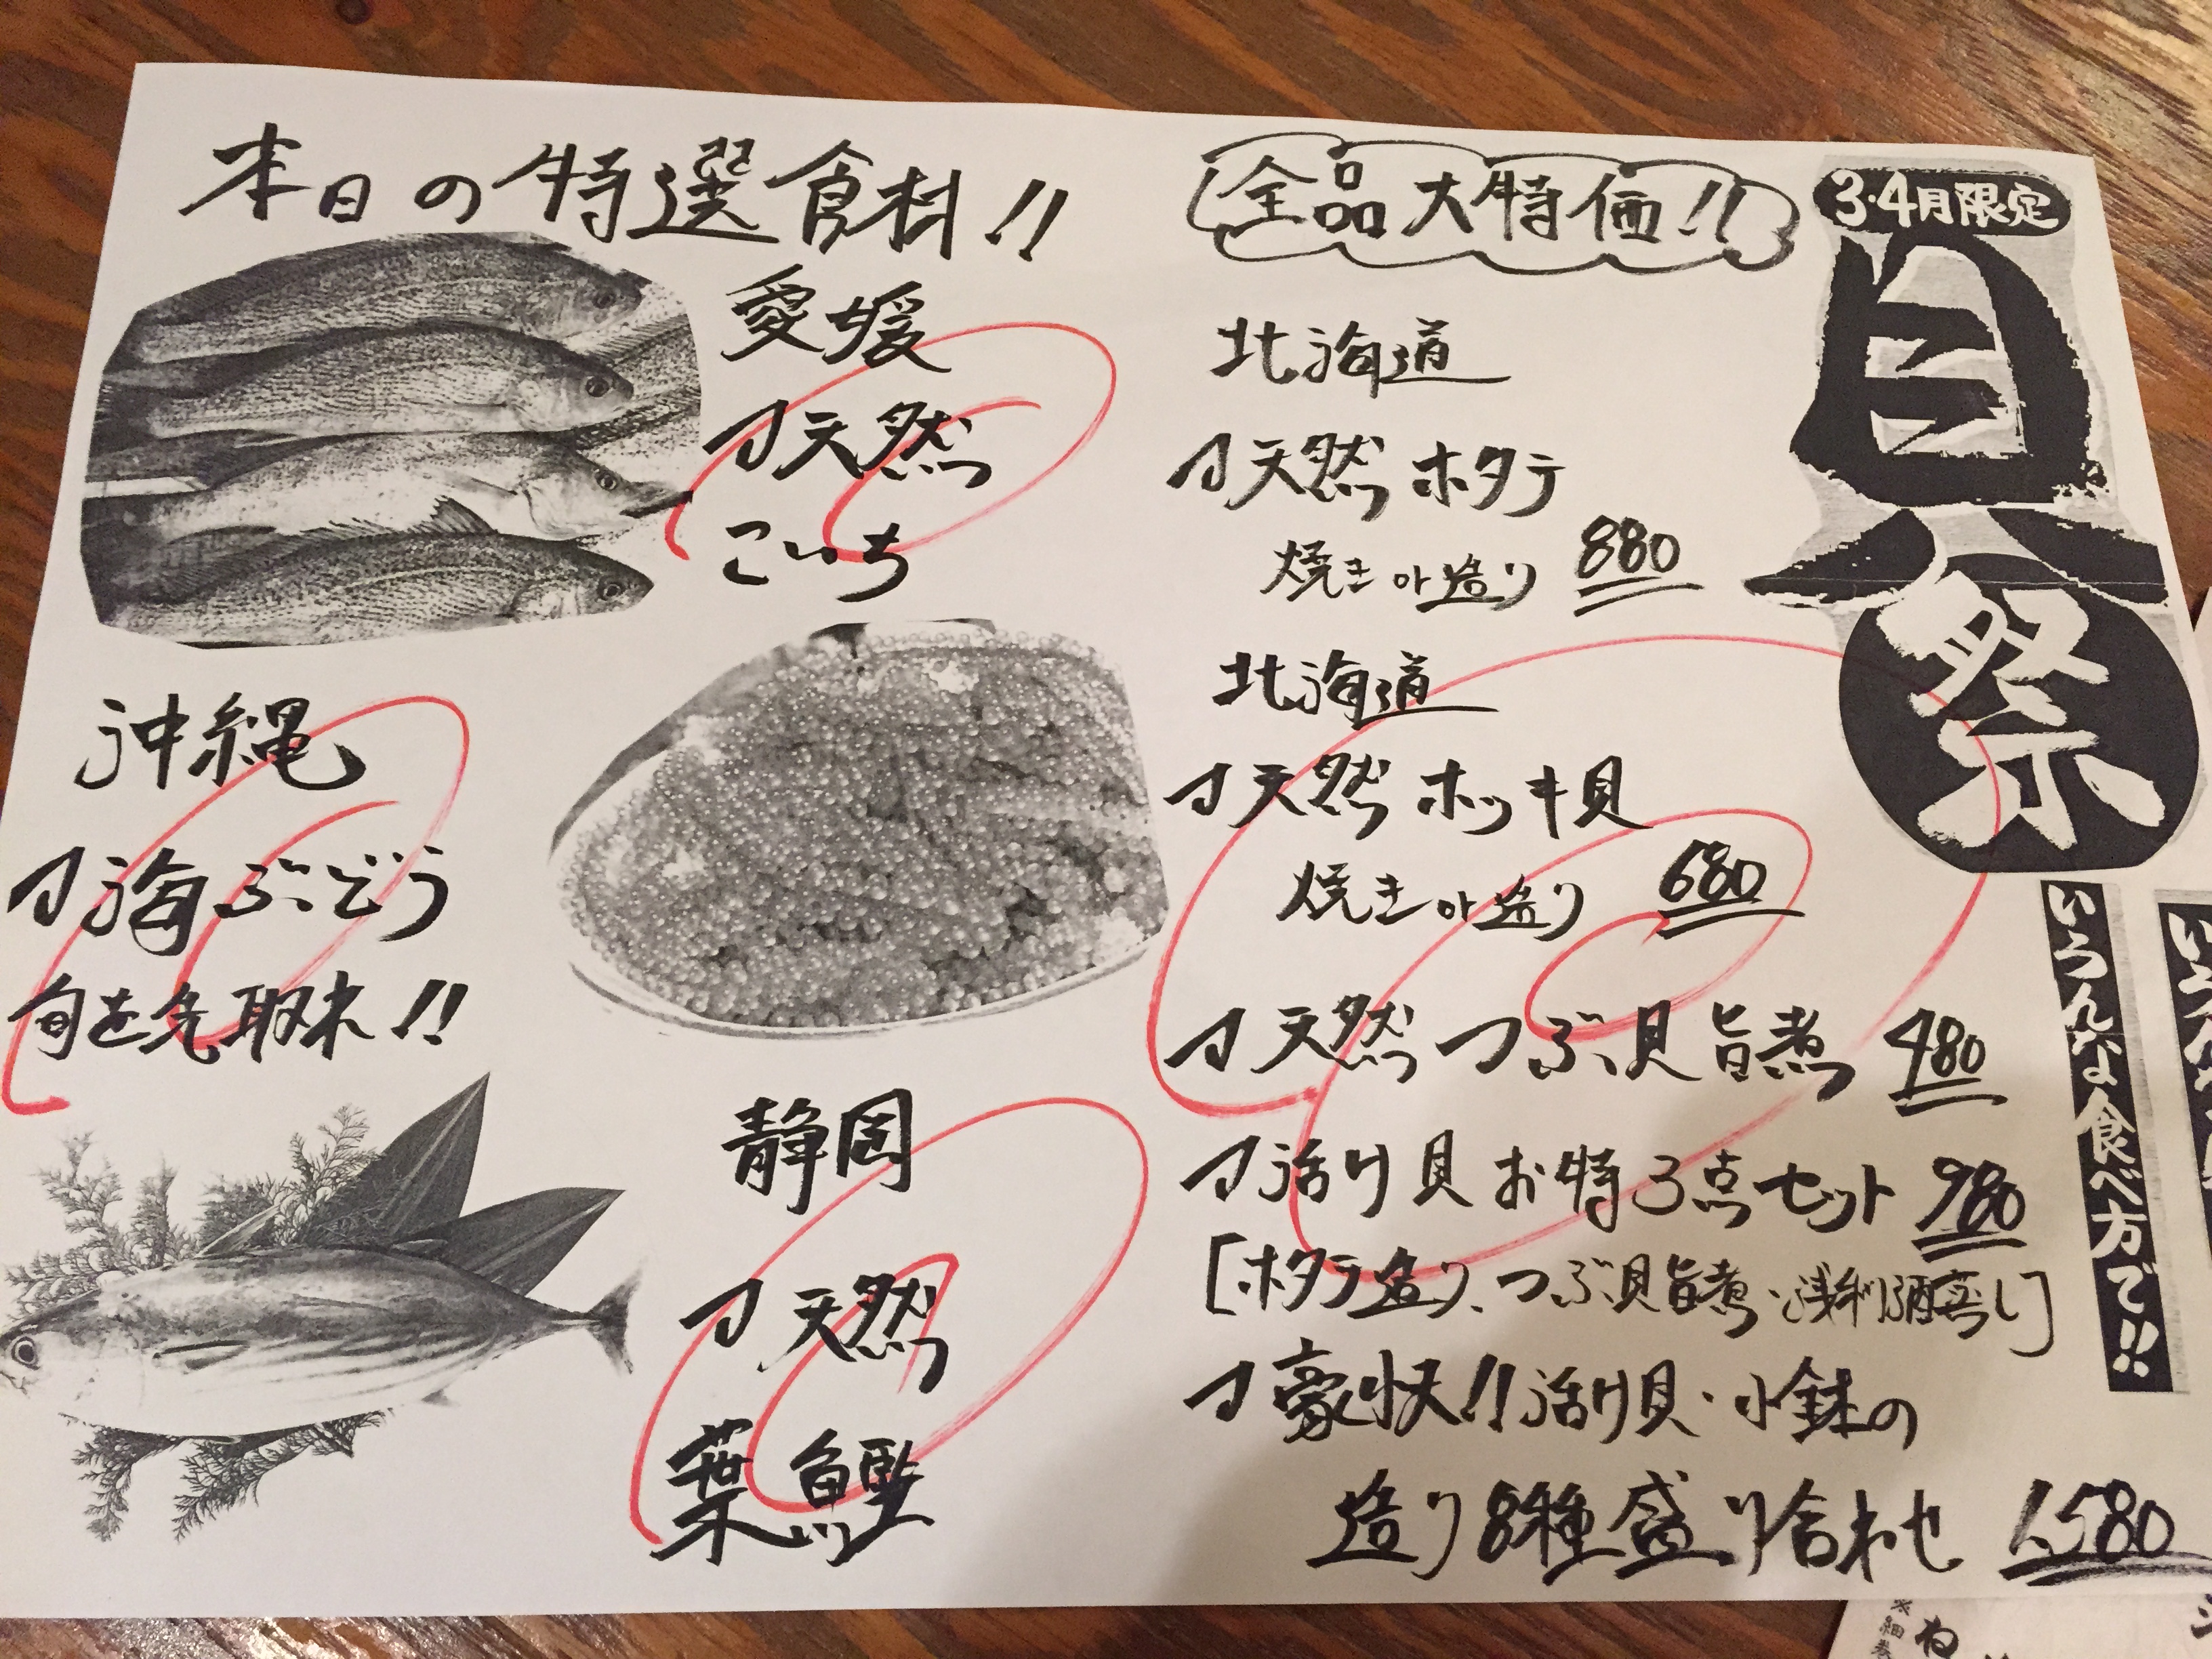 本日の特選食材!!
愛媛
天然
こいち
沖縄
海ぶどう
旬を先取れ!!
静岡
天然
葉鰹
全品大特価!!
3・4月限定
貝祭
いろんな食べ方で!!
北海道
天然ホタテ
焼き or 造り 880
北海道
天然ホッキ貝
焼き or 造り 680
天然つぶ貝旨煮 480
活け貝お得3点セット 980
[ホタテ造り、つぶ貝旨煮・浅利酒蒸し]
豪快!!活け貝・小鉢の
造り8種盛り合わせ 1,580
細巻
ね